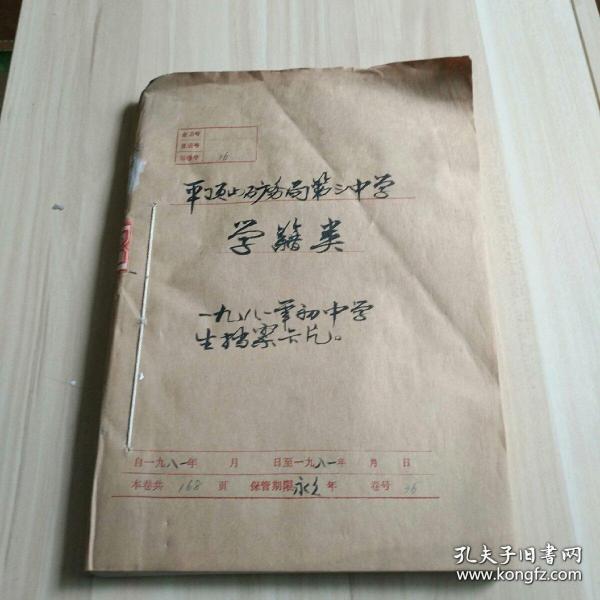 案卷号 36
平顶山矿务局第三中学
学籍类
一九八一年初中学
生档案卡片。
自一九八一年 月 日至一九八一年 月 日
本卷共 168 页 保管期限永久年 卷号 36
孔夫子旧书网
www.kongfz.com